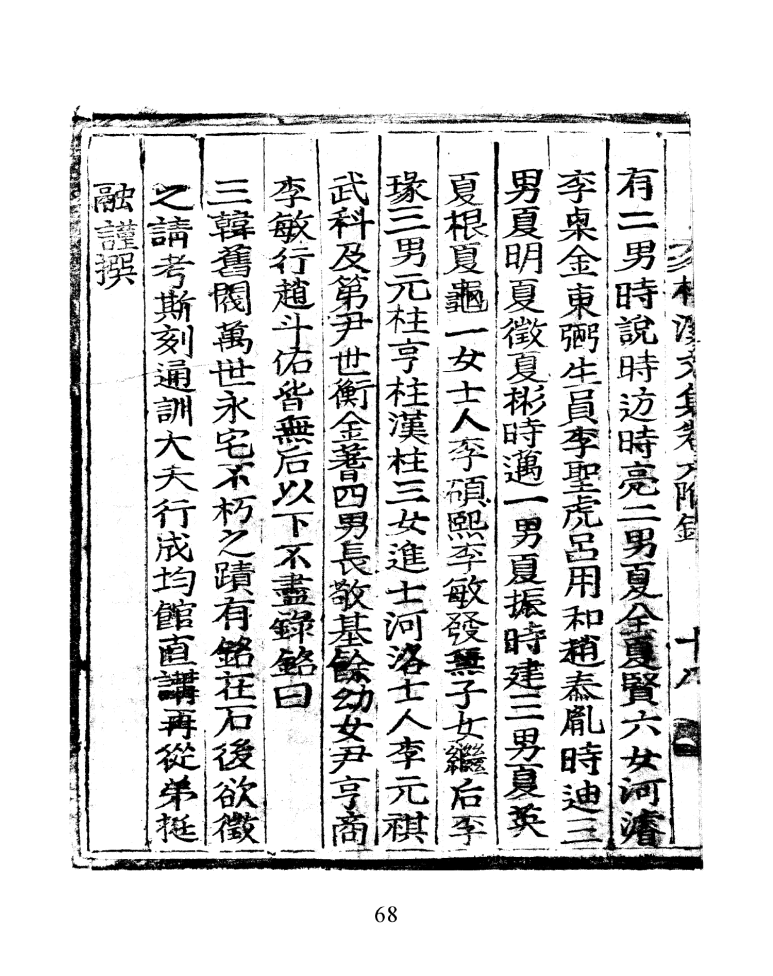 溪文集卷 附錄 十八
有二男時說時迈時亮二男夏全夏賢六女河濬
李臬金東弼生員李聖虎呂用和趙泰胤時迪三
男夏明夏徵夏彬時邁一男夏振時建三男夏英
夏根夏龜一女士人李碩熙李敏發無子女繼后李
瑑三男元柱亨柱漢柱三女進士河洛士人李元祺
武科及第尹世衡金蓍四男長敬基餘幼女尹亨商
李敏行趙斗佑皆無后以下不盡錄銘曰
三韓舊閥萬世永宅不朽之蹟有銘在石後欲徵
之請考斯刻通訓大夫行成均館直講再從弟挺
融謹撰
68